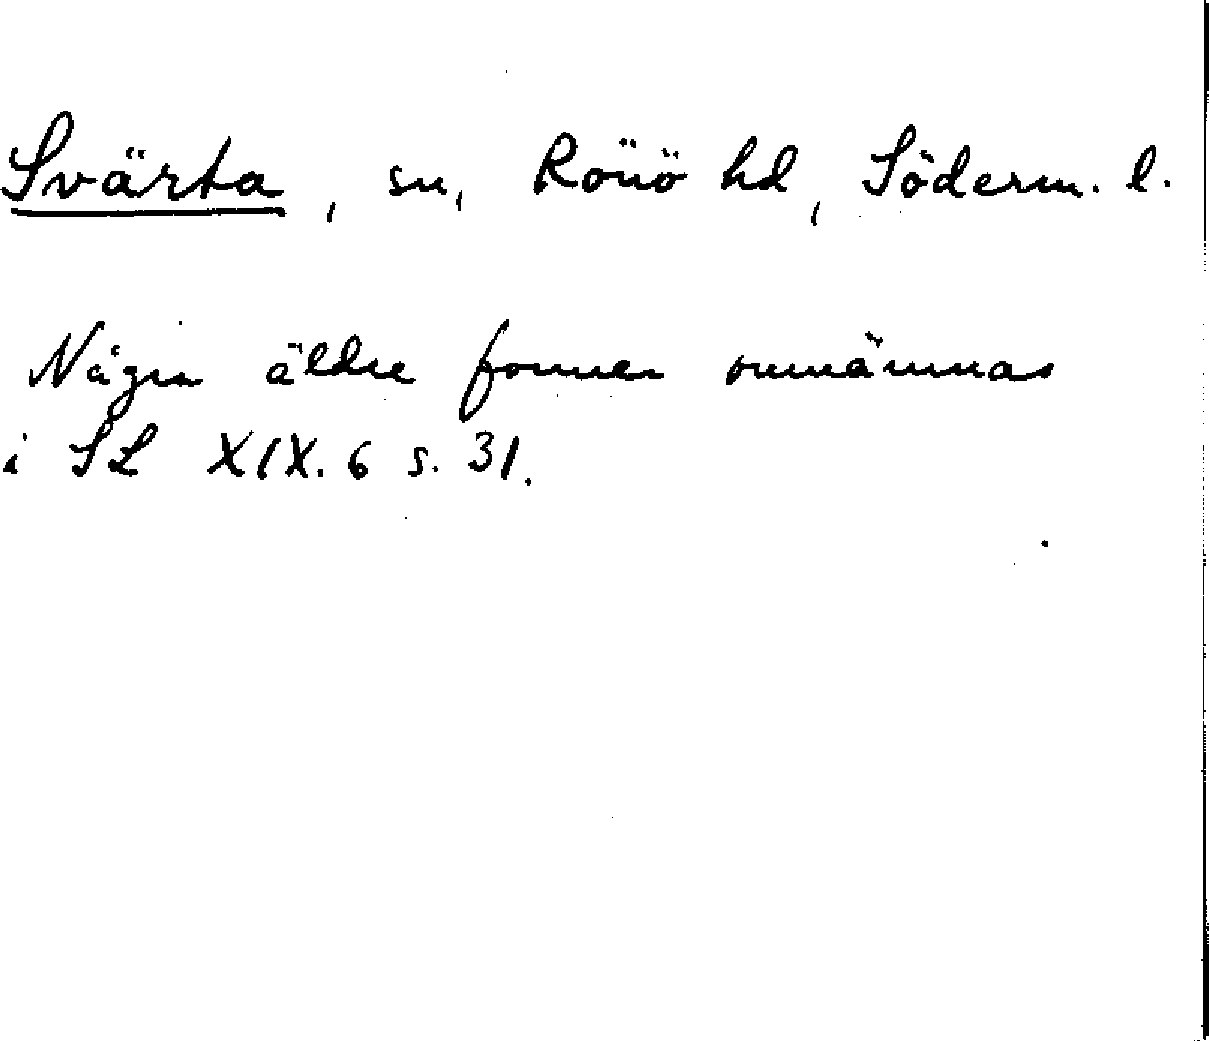 Svärta, sn, Rönö hd, Söderm. l.
Några äldre former omnämnas
i SL XIX. 6 s. 31.